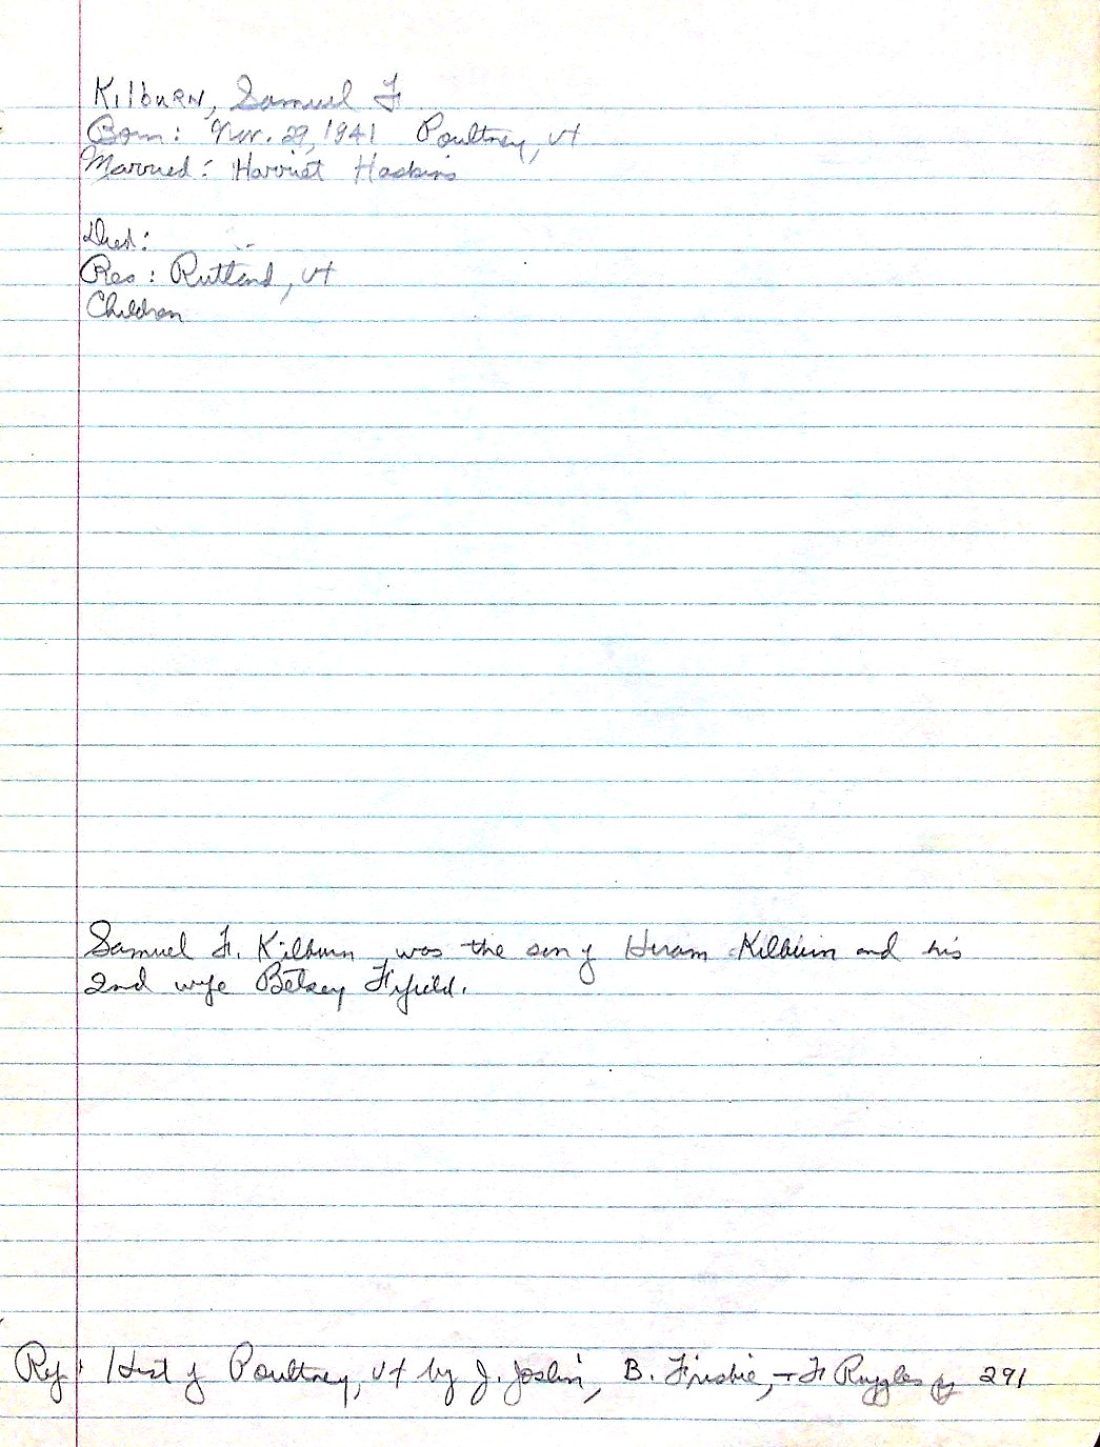 Kilburn, Samuel F
Born: Nov. 29, 1941 Poultney, Vt
Married: Harriet Haskins
Died:
Res: Rutland, Vt
Children
Samuel F. Kilburn was the son of Hiram Kilburn and his
2nd wife Betsey Fifield.
Ref: Hist of Poultney, Vt by J. Joslin, B. Frisbie, + F Ruggles pg 291